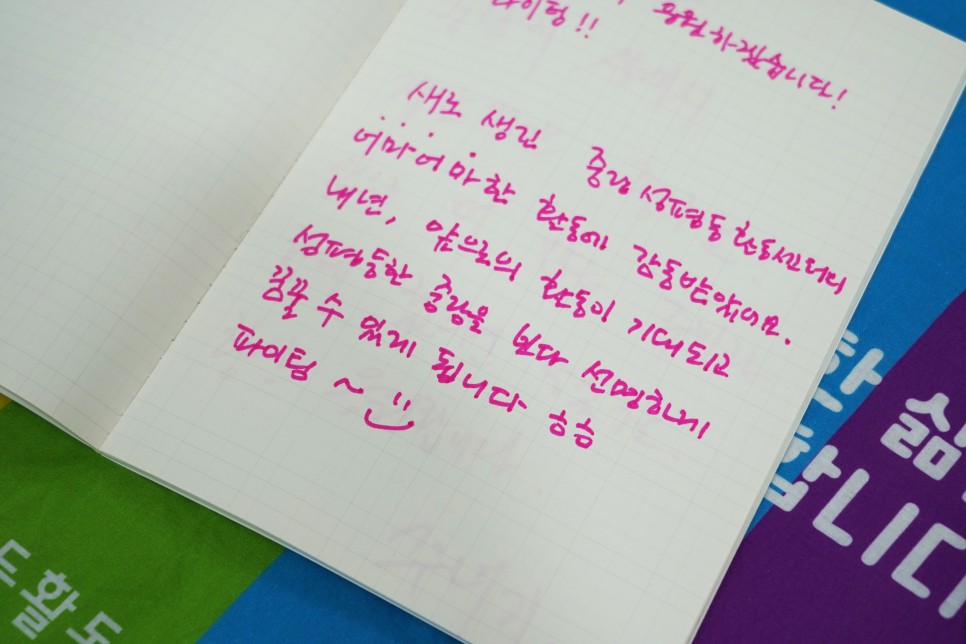 응원하겠습니다!
파이팅!!
새로 생긴 중랑 성평등 활동센터의
어마어마한 활동에 감동받았어요.
내년, 앞으로의 활동이 기대되고
성평등한 중랑을 보다 선명하게
꿈꿀 수 있게 됩니다 ㅎㅎ
파이팅~
한
삶
합니다
드활동